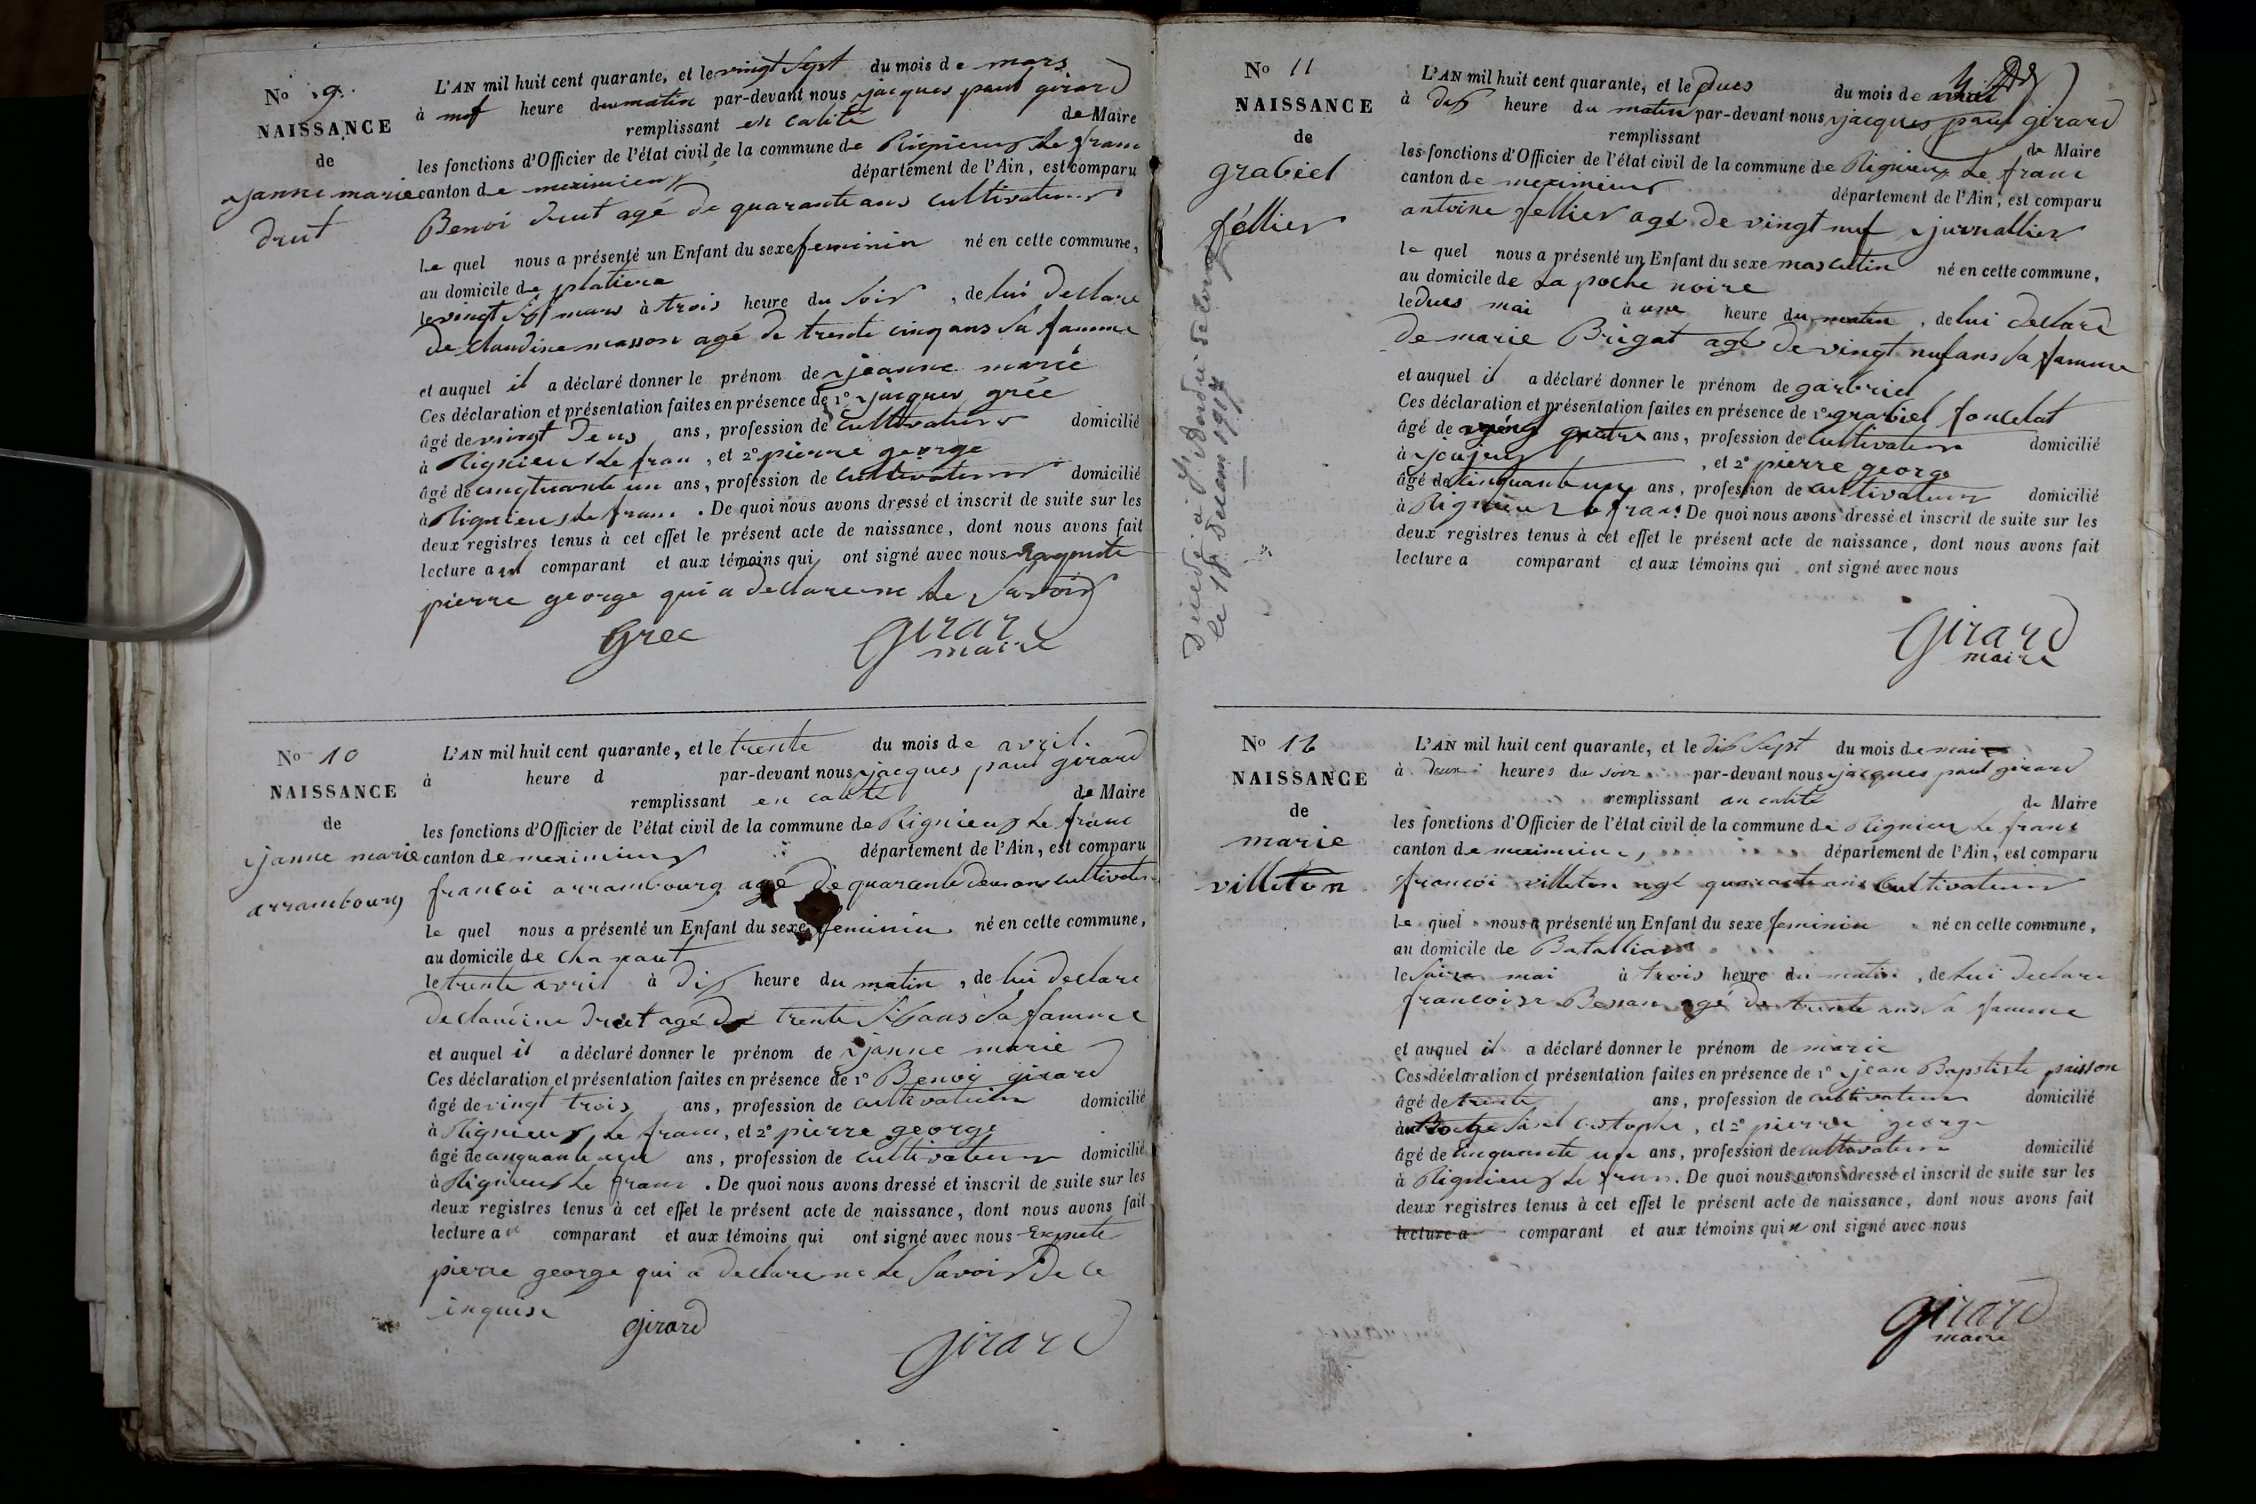 No 9.
NAISSANCE
de
janne marie
drut
L'AN mil huit cent quarante, et le vingt sept du mois de mars
à nuf heure du matin par-devant nous jacques paul girard
remplissant en calité de Maire
les fonctions d'Officier de l'état civil de la commune de Rignieux le franc
canton de meximieux département de l'Ain, est comparu
Benoi drut agé de quarante ans cultivateur
le quel nous a présenté un Enfant du sexe feminin né en cette commune,
au domicile de platiere
le vingt six mars à trois heure du soir, de lui declare
de claudine masson agé de trente cinq ans sa famme
et auquel il a déclaré donner le prénom de jeanne marie
Ces déclaration et présentation faites en présence de 1° jacques grée
âgé de vingt deus ans, profession de cultivateur domicilié
à Rignieux le fran, et 2° pierre george
âgé de cinqtuante un ans, profession de cultivateur domicilié
à Rignieux le franc. De quoi nous avons dressé et inscrit de suite sur les
deux registres tenus à cet effet le présent acte de naissance, dont nous avons fait
lecture au comparant et aux témoins qui ont signé avec nous
pierre george qui a declare ne le savoir
Grec Girard
maire
No 10
NAISSANCE
de
janne marie
arrambourg
L'AN mil huit cent quarante, et le trente du mois de avril.
à heure d par-devant nous jacques paul girard
remplissant en calité de Maire
les fonctions d'Officier de l'état civil de la commune de Rignieux le franc
canton de meximieux département de l'Ain, est comparu
francoi arrambourg agé de quarante deus ans cultivateur
le quel nous a présenté un Enfant du sexe feminin né en cette commune,
au domicile de chanaut
le trente avril à dix heure du matin, de lui declare
de claudine drut agé de trente six ans sa famme
et auquel il a déclaré donner le prénom de janne marie
Ces déclaration et présentation faites en présence de 1° Benoi girard
âgé de vingt trois ans, profession de cultivateur domicilié
à Rignieux le franc, et 2° pierre george
âgé de cinquante un ans, profession de cultivateur domicilié
à Rignieux le franc. De quoi nous avons dressé et inscrit de suite sur les
deux registres tenus à cet effet le présent acte de naissance, dont nous avons fait
lecture a comparant et aux témoins qui ont signé avec nous
pierre george qui a declare ne le savoir de ce
inquise
girard
Girard
No 11
NAISSANCE
de
grabiel
féllier
le 18 1914
L'AN mil huit cent quarante, et le dues du mois de mai
à dix heure du matin par-devant nous jacques paul girard
remplissant de Maire
les fonctions d'Officier de l'état civil de la commune de Rignieux le franc
canton de meximieux département de l'Ain, est comparu
antoine fellier agé de vingt nuf jurnallier
le quel nous a présenté un Enfant du sexe masculin né en cette commune,
au domicile de la poche noire
le dues mai à une heure du matin, de lui declare
de marie Brigat agé de vingt nuf ans sa famme
et auquel il a déclaré donner le prénom de garbriel
Ces déclaration et présentation faites en présence de 1° grabiel
âgé de vying quatre ans, profession de cultivateur domicilié
à joujeux, et 2° pierre george
âgé de cinquante un ans, profession de cultivateur domicilié
à Rignieux le franc. De quoi nous avons dressé et inscrit de suite sur les
deux registres tenus à cet effet le présent acte de naissance, dont nous avons fait
lecture a comparant et aux témoins qui ont signé avec nous
Girard
maire
No 12
NAISSANCE
de
marie
villeton
L'AN mil huit cent quarante, et le dix sept du mois de mai
à deux heures du soir par-devant nous jacques paul girard
remplissant an calité de Maire
les fonctions d'Officier de l'état civil de la commune de Rignieux le franc
canton de meximieux, département de l'Ain, est comparu
francoi villeton agé quarante ans cultivateur
le quel nous a présenté un Enfant du sexe feminin né en cette commune,
au domicile de Batalliard
le saize mai à trois heure du matin, de lui declare
francoise Bessan agé de trente ans sa famme
et auquel il a déclaré donner le prénom de marie
Ces déclaration et présentation faites en présence de 1° jean Bapstiste puisson
âgé de trente ans, profession de cultivateur domicilié
à, et 2° pierre george
âgé de cinquante un ans, profession de cultivateur domicilié
à Rignieux le franc. De quoi nous avons dressé et inscrit de suite sur les
deux registres tenus à cet effet le présent acte de naissance, dont nous avons fait
lecture a comparant et aux témoins qui n ont signé avec nous
Girard
maire